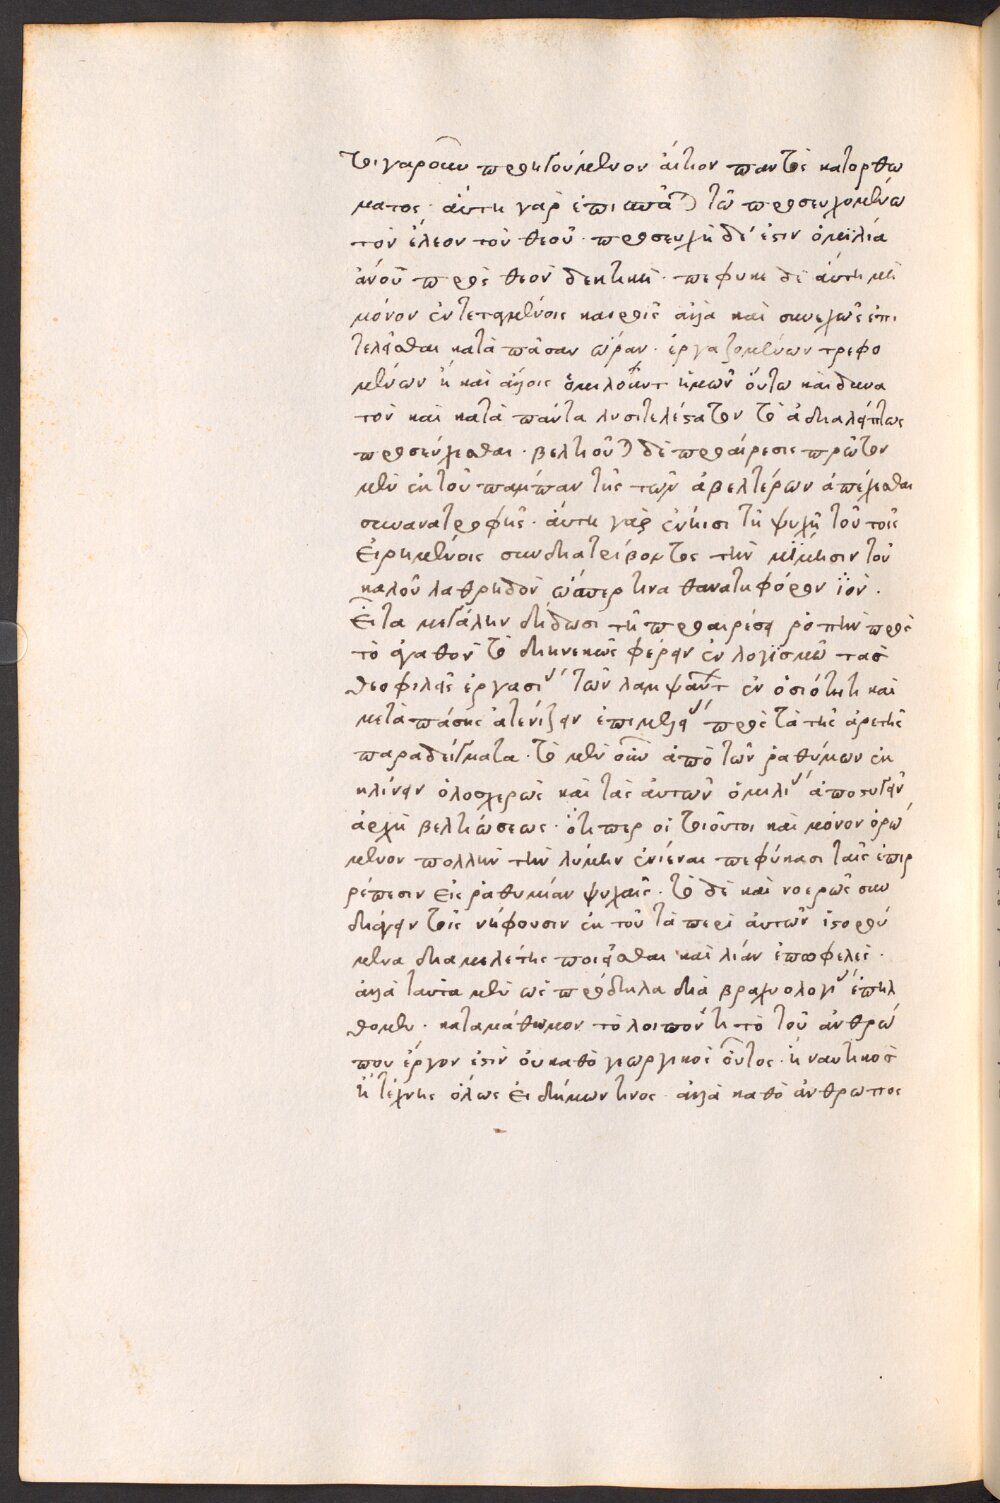 τοιγαροῦν προηγούμενον αἴτιον παντὸς κατορθώ
ματος· αὕτη γὰρ ἐπισπᾶται τῶ προσευχομένω
τὸν ἔλεον τοῦ θεοῦ· προσευχὴ δέ ἐστιν ὁμιλία
ἀνου πρὸς θεὸν δεητικὴ· πέφυκε δὲ αὕτη μὴ
μόνον ἐντεταγμένοις καιροῖς ἀλλὰ καὶ συνεχῶς ἐπι
τελεῖσθαι κατὰ πᾶσαν ὥραν· ἐργαζομένων τρεφο
μένων ἢ καὶ ἄλλοις ὁμιλούντων ἡμῶν οὕτω καὶ δυνα
τὸν καὶ κατὰ πάντα λυσιτελέστατον τὸ ἀδιαλείπτως
προσεύχεσθαι· βελτιοῦται δὲ προαίρεσις πρῶτον
μὲν ἐκ τοῦ παμπαν τῆς τῶν ἀβελτέρων ἀπέχεσθαι
συναναστροφῆς· αὕτη γὰρ ἐνίησι τῆ ψυχῆ τοῦ τοῖς
εἰρημένοις συνδιατρίβοντος τὴν μίμησιν τοῦ
κακοῦ λαθρηδὸν ὥσπερ τινα θανατηφόρον ἰὸν·
Εἶτα μεγάλην δίδωσι τῆ προαιρέσει ροπὴν πρὸς
τὸ ἀγαθὸν τὸ διηνεκῶς φέρειν ἐν λογισμῶ τὰς
θεοφιλεῖς ἐργασίας τῶν λαμψάντων ἐν ὁσιότητι καὶ
μετὰ πάσης ἀτενίζειν ἐπιμελείας πρὸς τὰ τῆς ἀρετῆς
παραδείγματα· τὸ μὲν οὖν ἀπὸ τῶν ραθύμων ἐκ
κλίνειν ὁλοσχερῶς καὶ τὰς αὐτῶν ὁμιλίας ἀποστυγεῖν
ἀρχὴ βελτιώσεως· ὅτιπερ οἱ τοιοῦτοι καὶ μόνον ὁρώ
μενοι πολλὴν τὴν λύμην ἐνιέναι πεφύκασι ταῖς ἐπιρ
ρέπεσιν εἰς ραθυμίαν ψυχαῖς· τὸ δὲ καὶ νοερῶς συν
διάγειν τοῖς νήφουσιν ἐκ τοῦ τὰ περὶ αὐτῶν ἱστορού
μενα διὰ μελέτης ποιεῖσθαι καὶ λίαν ἐπωφελὲς·
ἀλλὰ ταῦτα μὲν ὡς πρόδηλα διὰ βραχυολογίας ἐπήλ
θομεν· καταμάθωμεν τὸ λοιπὸν τί τὸ τοῦ ἀνθρώ
που ἔργον ἐστὶν οὐ καθὸ γεωργικὸς οὗτος· ἢ ναυτικὸς
ἢ τέχνης ὅλως εἰδήμων τινος· ἀλλὰ καθὸ ἄνθρωπος